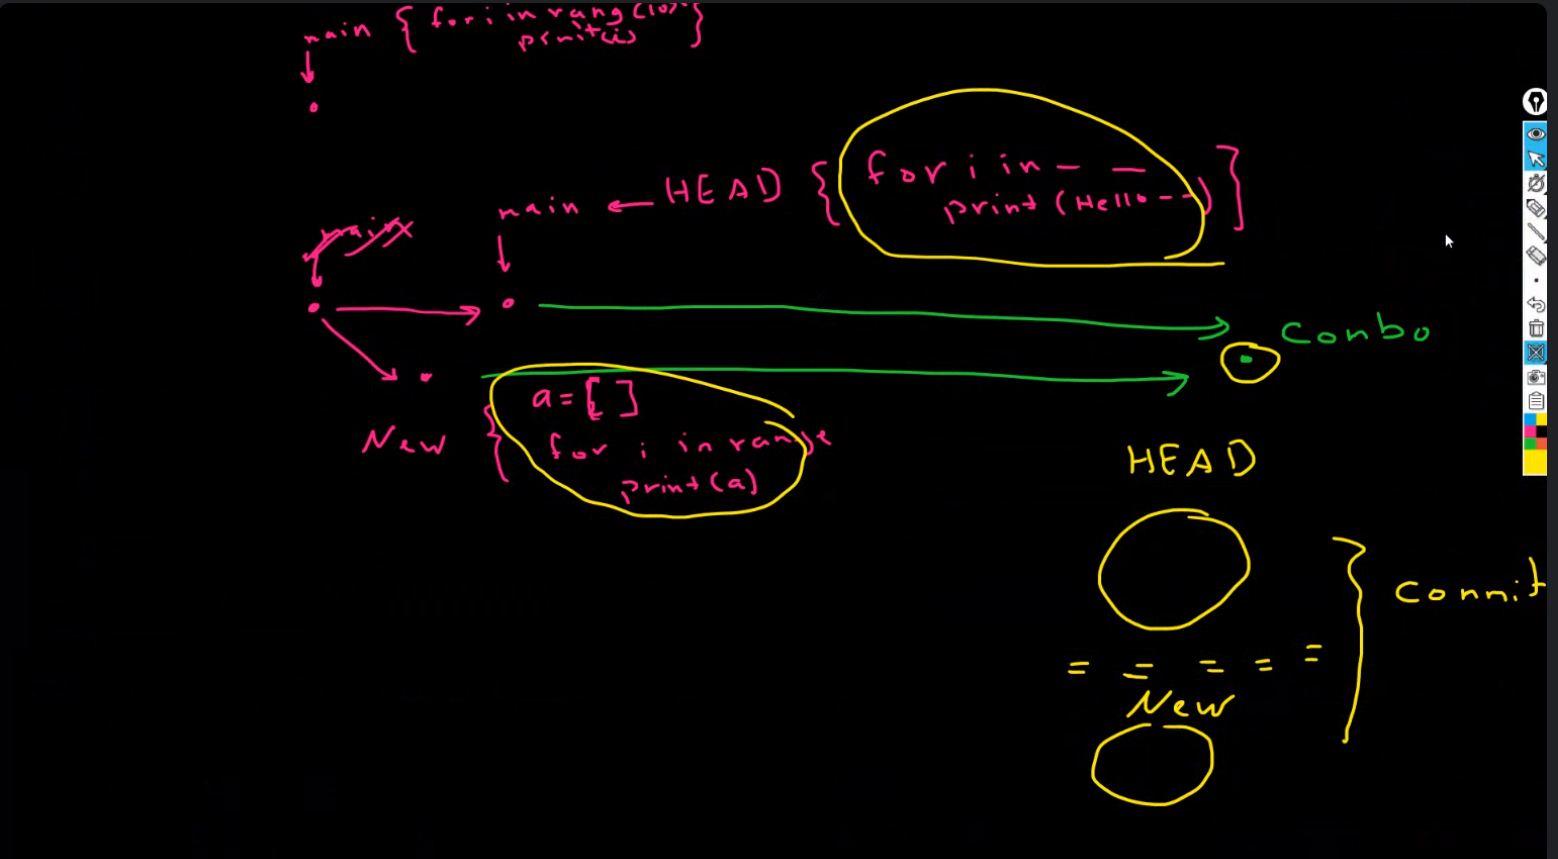 main { for i in rang (10) }
print(i)
main
main ← HEAD { for i in — — }
print (Hello - -)
Combo
New { a = [ ]
for i in range
print (a)
HEAD
= = = = =
New
Commit